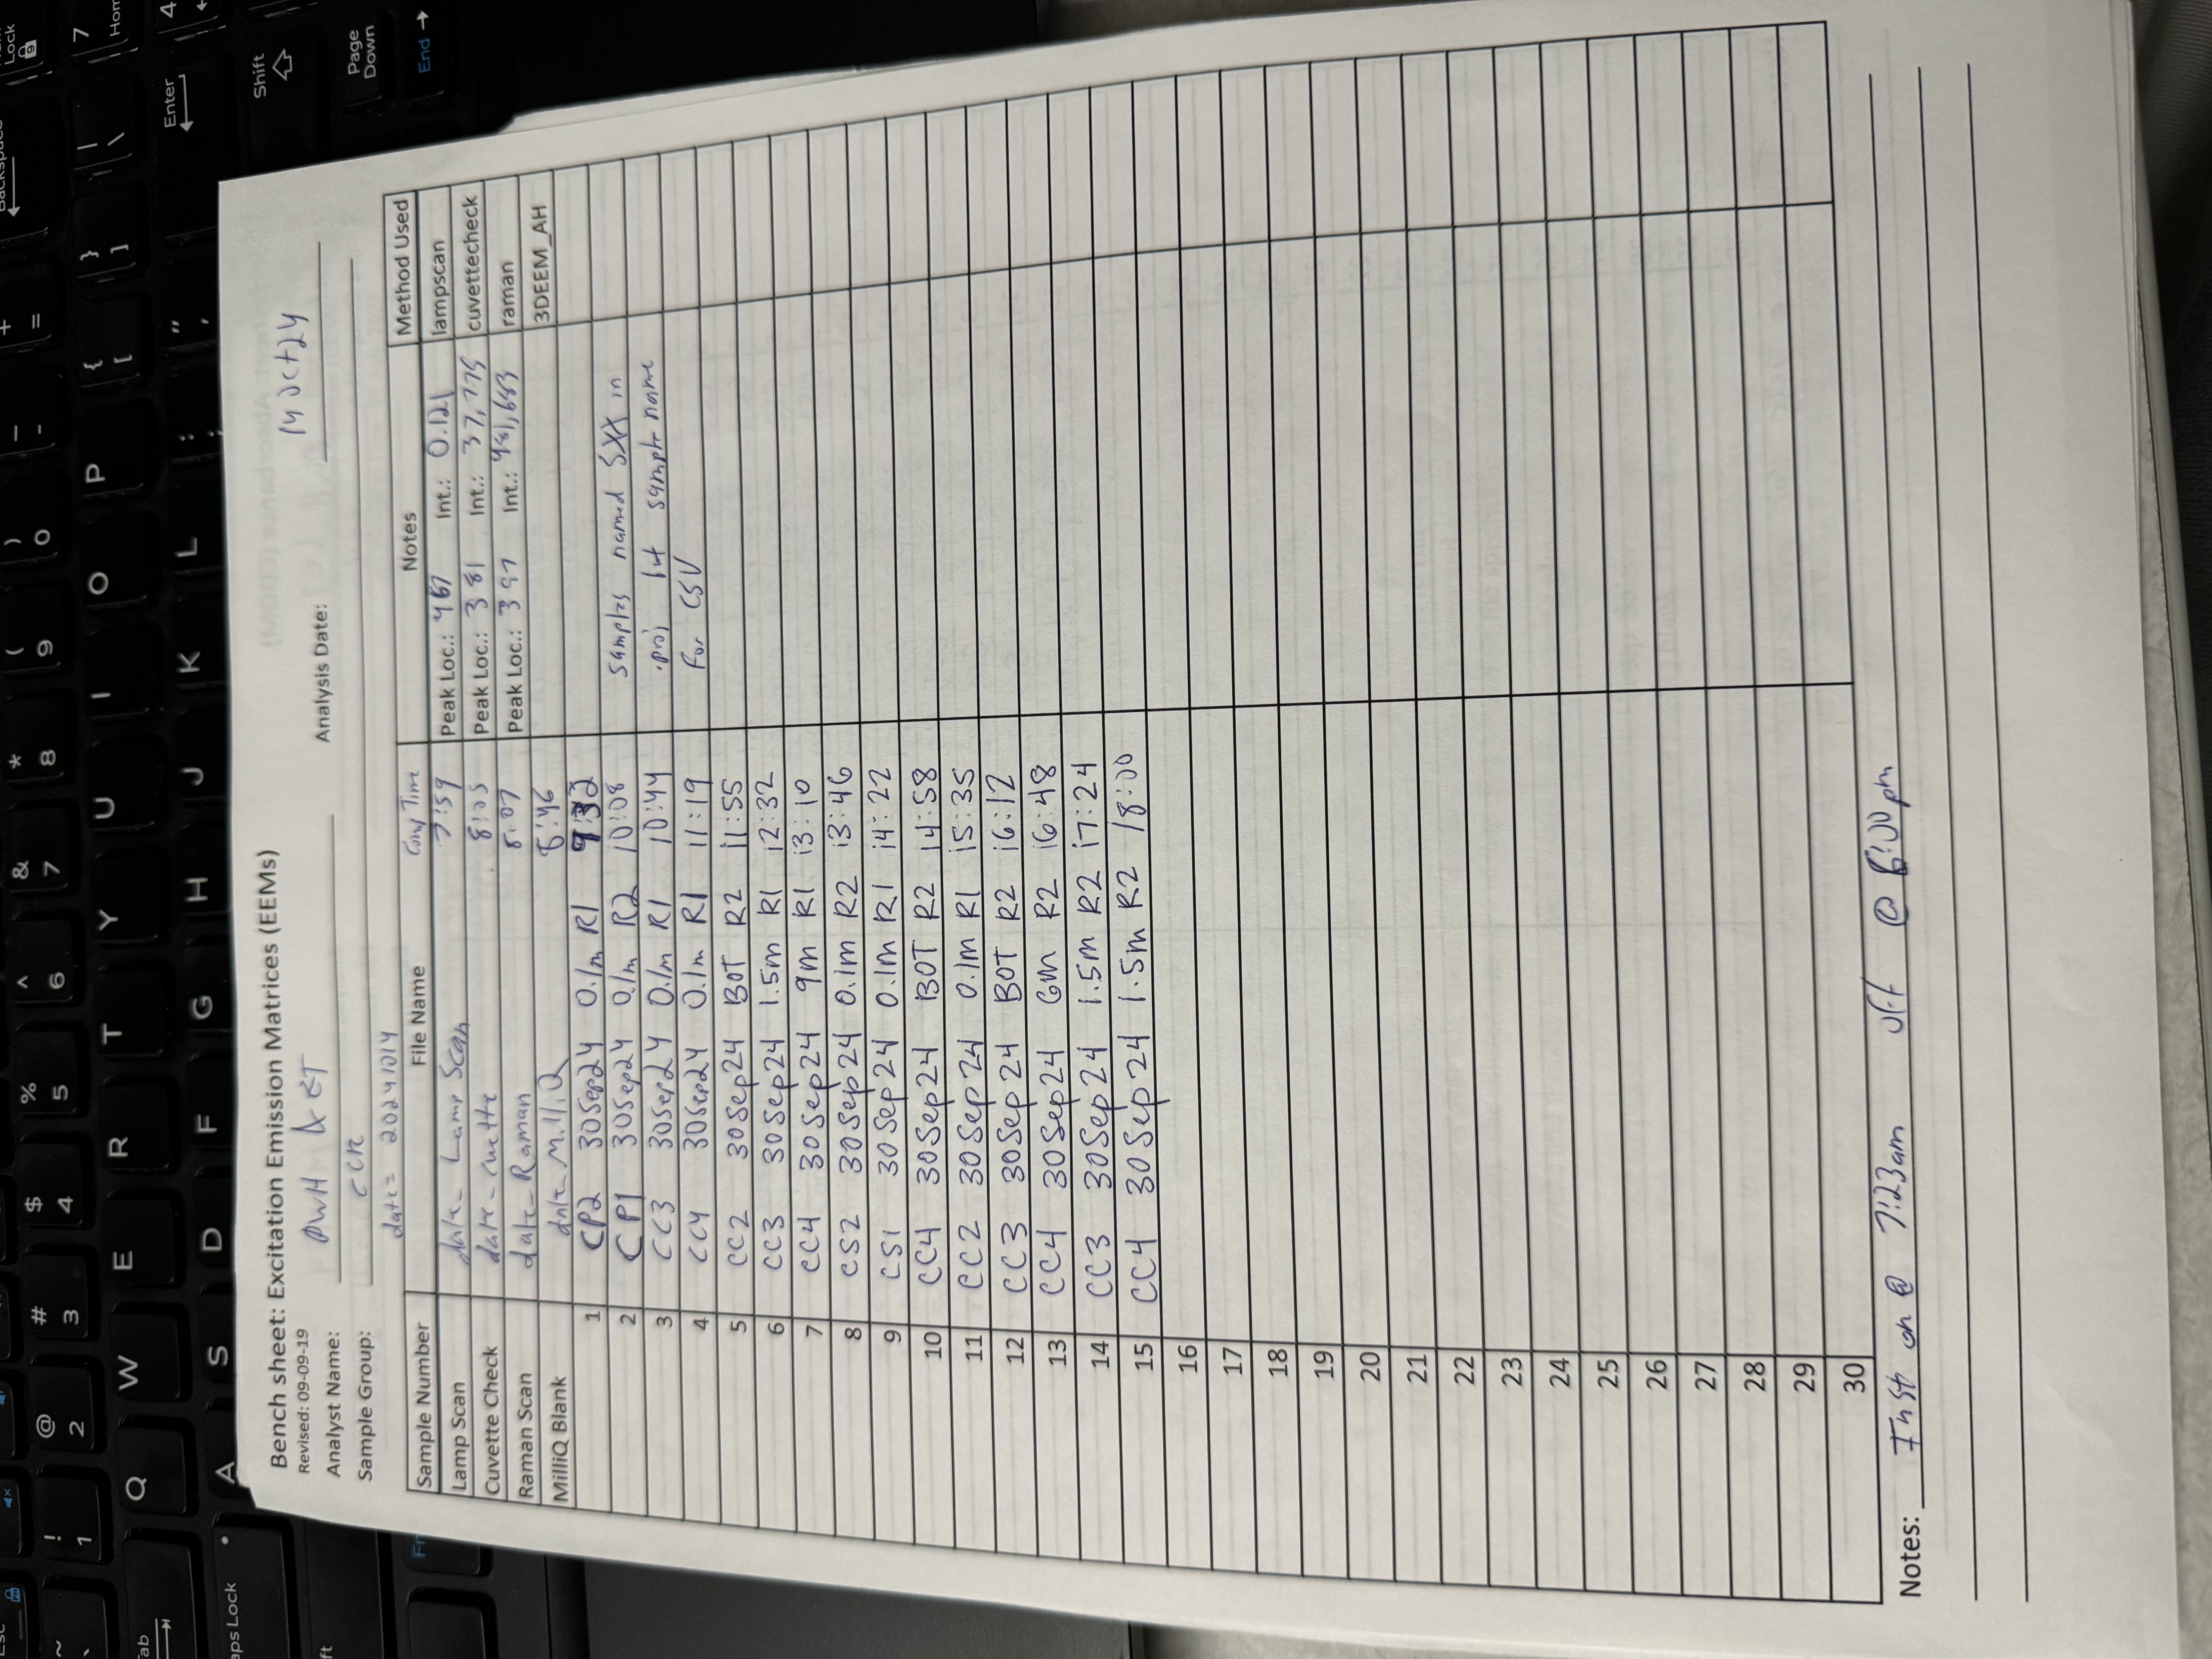 ! @ # $ % ^ & * ( ) _ + Backspace Lock
~ ` 1 2 3 4 5 6 7 8 9 0 - =
Tab Q W E R T Y U I O P { [ } ] | \ 7 Home
Caps Lock A S D F G H J K L : ; " ' Enter 4
Shift
Page Down
Fn End
Bench sheet: Excitation Emission Matrices (EEMs)
Revised: 09-09-19
Analyst Name: Analysis Date: 14 Oct 24
Sample Group: CCR
date= 20241014
Sample Number File Name Comp Time Notes Method Used
Lamp Scan date_ Lamp Scan 7:59 Peak Loc.: 467 Int.: 0.121 lampscan
Cuvette Check date_cuvette 8:05 Peak Loc.: 381 Int.: 37,775 cuvettecheck
Raman Scan date_Raman 8:07 Peak Loc.: 397 Int.: raman
MilliQ Blank date_MilliQ 8:46 3DEEM_AH
1 CP2 30Sep24 0.1m R1 9:32
2 CP1 30Sep24 0.1m R2 10:08 samples named SXX in
3 CC3 30Sep24 0.1m R1 10:44 .proj but sample name
4 CC4 30Sep24 0.1m R1 11:19 for CSV
5 CC2 30Sep24 BOT R2 11:55
6 CC3 30Sep24 1.5m R1 12:32
7 CC4 30Sep24 9m R1 13:10
8 CS2 30Sep24 0.1m R2 13:46
9 CS1 30Sep24 0.1m R1 14:22
10 CC4 30Sep24 BOT R2 14:58
11 CC2 30Sep24 0.1m R1 15:35
12 CC3 30Sep24 BOT R2 16:12
13 CC4 30Sep24 6m R2 16:48
14 CC3 30Sep24 1.5m R2 17:24
15 CC4 30Sep24 1.5m R2 18:00
16
17
18
19
20
21
22
23
24
25
26
27
28
29
30
Notes: Inst on @ 7:23am off @ 6:00pm